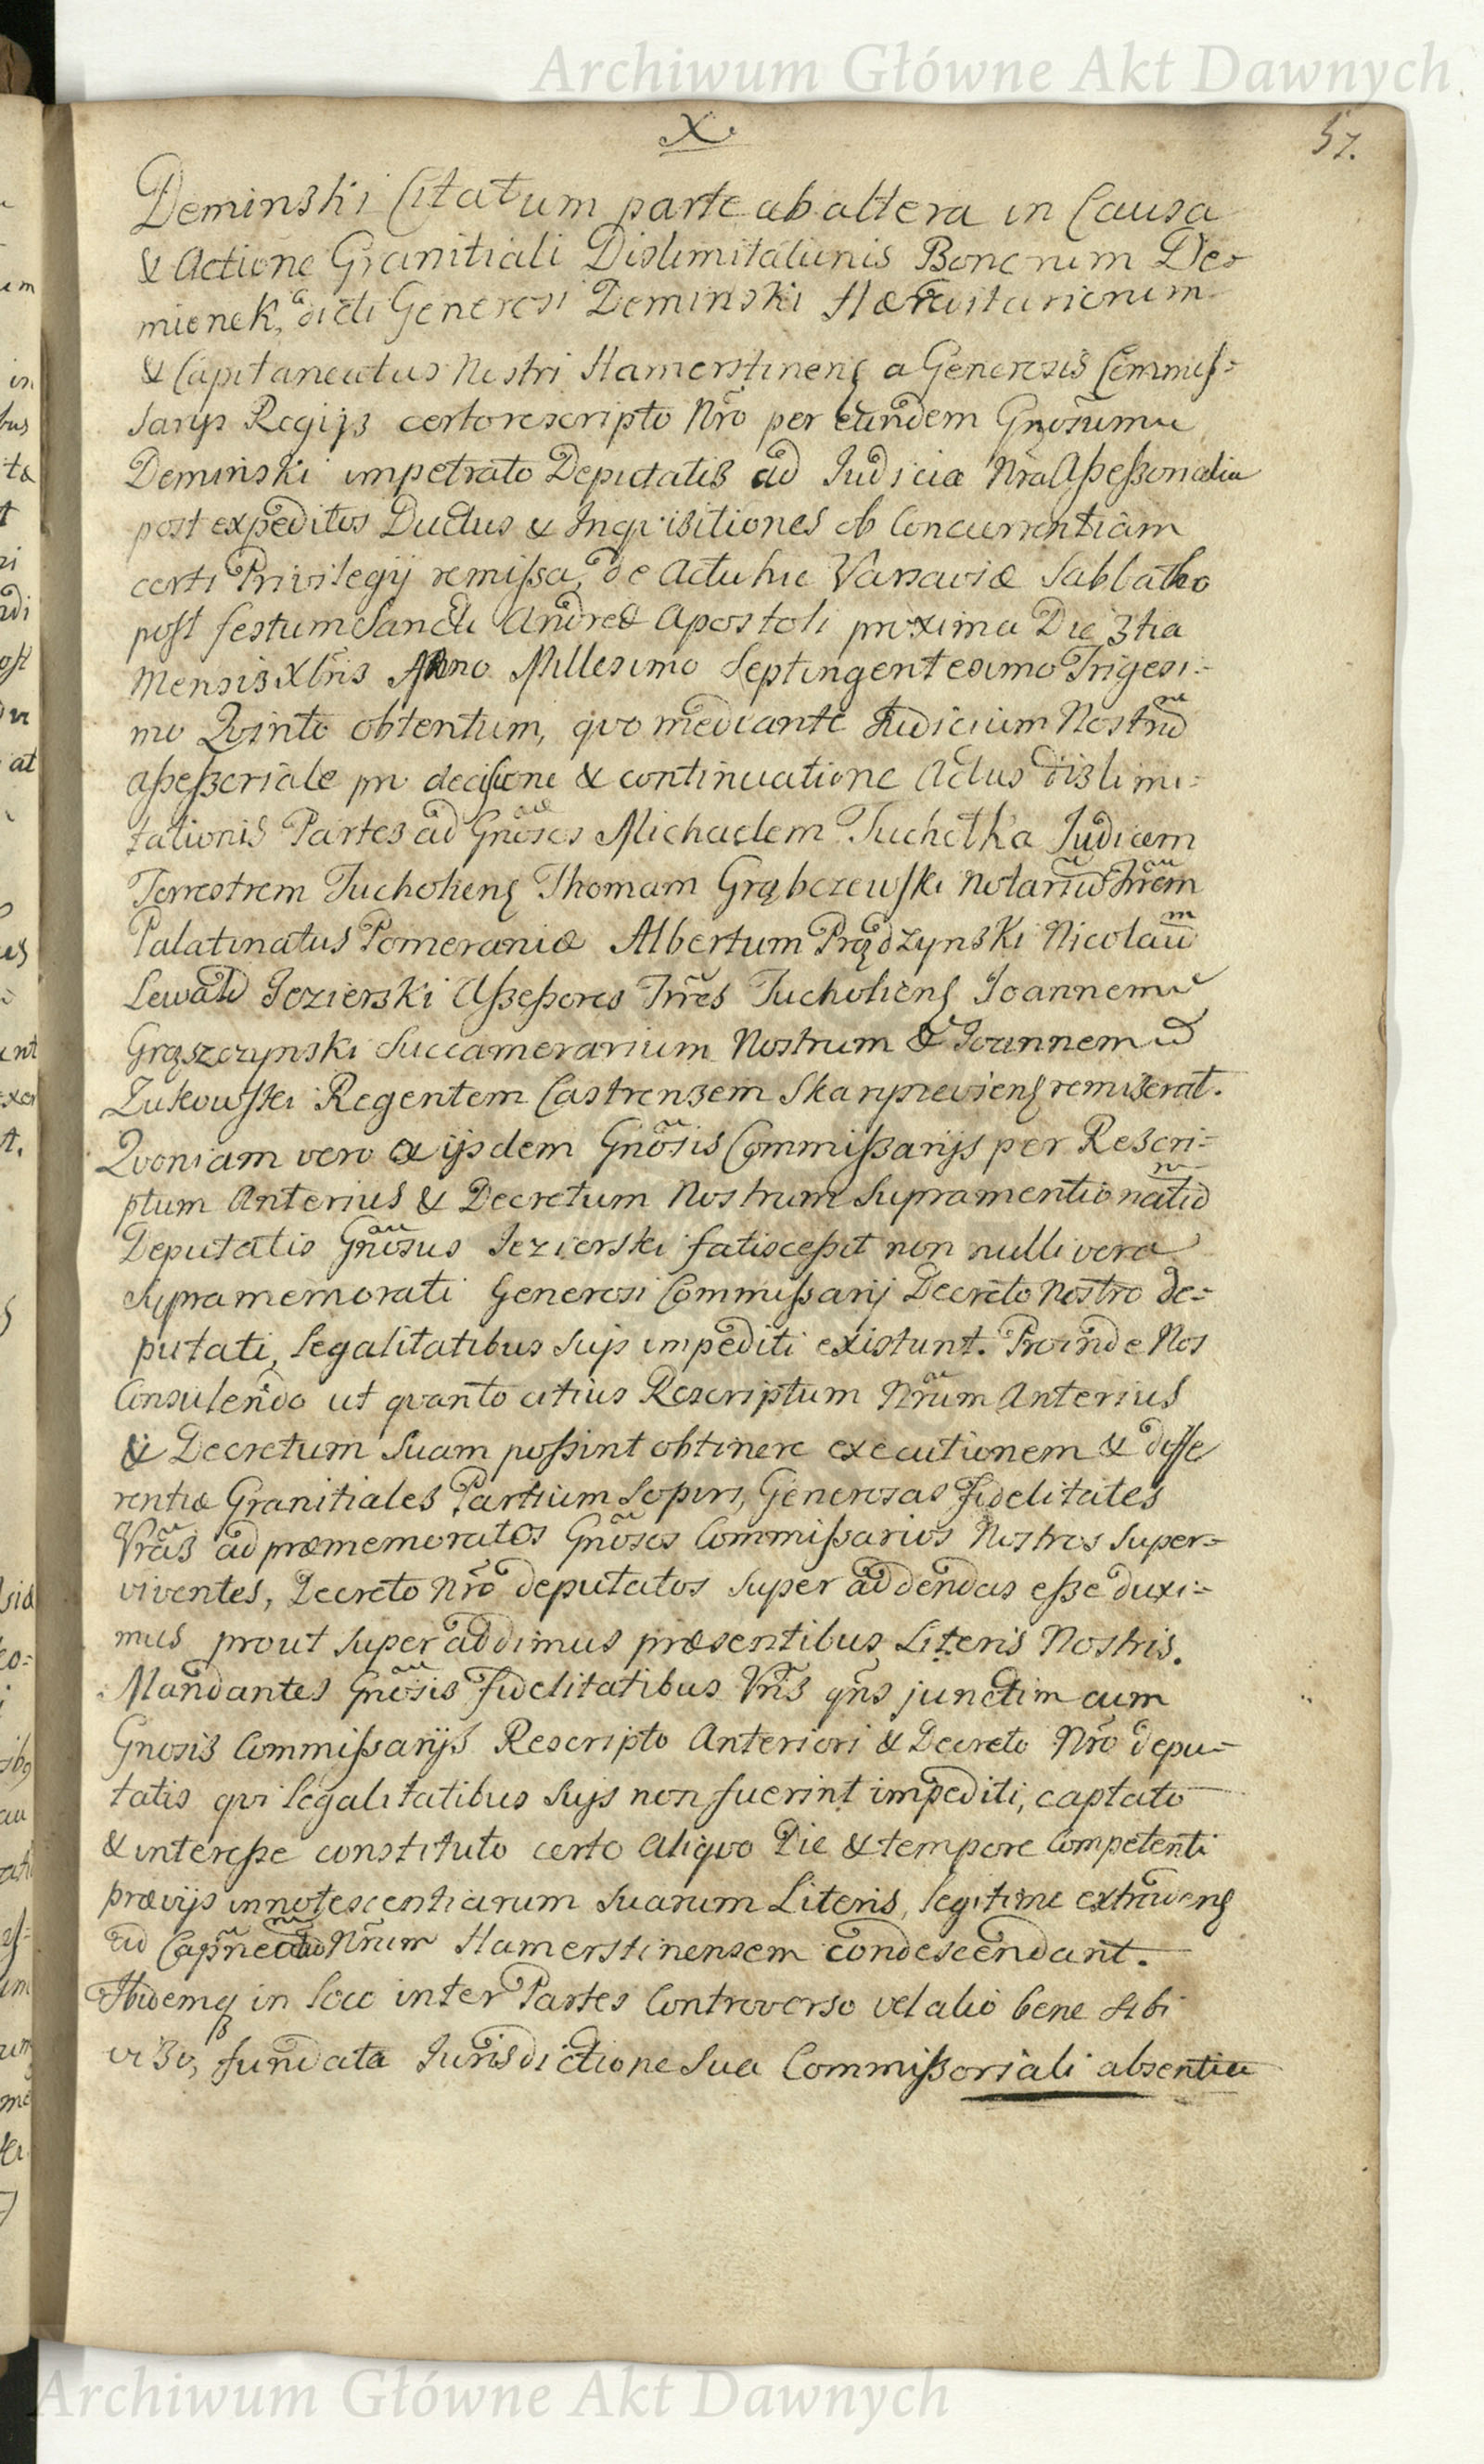 Archiwum Główne Akt Dawnych
X
57.
Deminski Citatum parte ab altera in Causa
& Actione Granitiali Dislimitationis Bonorum De=
mionek, dicti Generosi Deminski Hæreditariorum
& Capitaneatus Nostri Hamerstinens a Generosis Commis=
sarys Regijs certo rescripto Nro per eundem Gnosum
Deminski impetrato Deputatis ad Judicia Nra Aßeßorialia
post expeditos Ductus & Inqvisitiones ob Concurrentiam
certi Privilegij remißa, de Actu hic Varsaviæ Sabbatho
post festum Sancti Andreæ Apostoli proxima Die 3tia
Mensis Xbris Anno Millesimo Septingentesimo Trigesi=
mo Qvinto obtentum, qvo mediante Judicium Nostrum
aßeßoriale pro decisione & continuatione Actus dislimi=
tationis Partes ad Gnosos Michaelem Tuchołka Judicem
Terrestrem Tucholiens Thomam Grąbczewski Notarium Trrem
Palatinatus Pomeraniæ Albertum Prądzynski Nicolaum
Lewald Jezierski Aßeßores Trres Tucholiens Joannem
Grąszczynski Succamerarium Nostrum & Joannem
Zukowski Regentem Castrensem Skarszeviens remiserat.
Qvoniam vero ex ijsdem Gnosis Commißarijs per Rescri=
ptum Anterius & Decretum Nostrum supramentionatum
Deputatis Gnosus Jezierski fatisceßit non nulli vero
supramemorati Generosi Commißarij Decreto Nostro de=
putati, legalitatibus suis impediti existunt. Proinde Nos
Consulendo ut qvanto citius Rescriptum Nrum Anterius
& Decretum suam poßint obtinere executionem & diffe
rentiæ Granitiales Partium sopiri, Generosas Fidelitates
Vras ad præmemoratos Gnosos Commißarios Nostros super=
viventes, Decreto Nro deputatos super addendas eße duxi=
mus prout super addimus præsentibus Literis Nostris.
Mandantes Gnosis Fidelitatibus Vris qns junctim cum
Gnosis Commißarijs Rescripto Anteriori & Decreto Nro depu=
tatis qvi legalitatibus suis non fuerint impediti, captato
& intereße constituto certo aliqvo Die & tempore Competenti
prævijs innotescentiarum suarum Literis, legitime extradens
ad Capneatum Nrum Hamerstinensem condescendant.
Ibidemq in loco inter Partes Controverso vel alio bene sibi
viso, fundata Jurisdictione sua Commißoriali absentia
Archiwum Główne Akt Dawnych